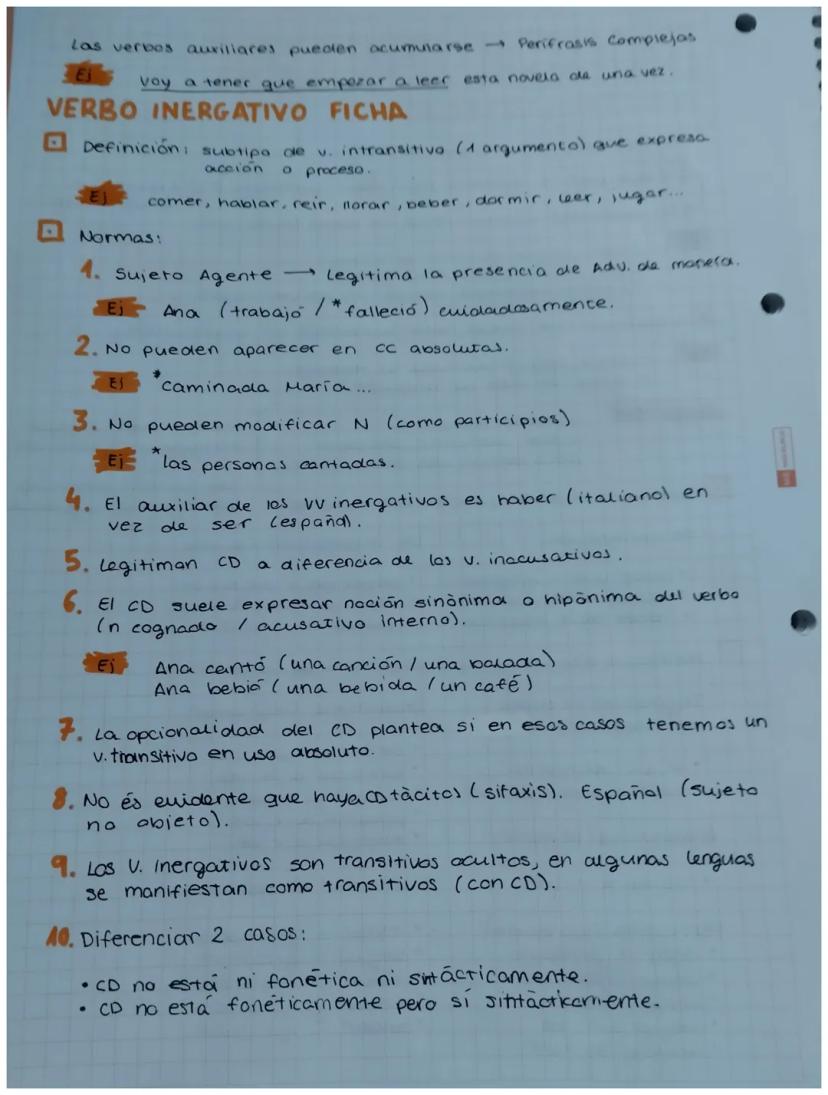 Las verbos auxiliares pueden acumularse → Perífrasis Complejas
Ej voy a tener que empezar a leer esta novela de una vez.
VERBO INERGATIVO FICHA
Definición: subtipo de v. intransitivo (1 argumento) que expresa
acción o proceso.
Ej comer, hablar, reir, llorar, beber, dormir, leer, jugar...
Normas:
1. Sujeto Agente → Legitima la presencia de Adv. de manera.
Ej Ana (trabajó / *falleció) cuidadosamente.
2. No pueden aparecer en CC absolutas.
Ej *Caminada María...
3. No pueden modificar N (como participios)
Ej *las personas cantadas.
4. El auxiliar de los VV inergativos es haber (italiano) en
vez de ser (español).
5. Legitiman CD a diferencia de los v. inacusativos.
6. El CD suele expresar noción sinònima o hipònima del verbo
(n cognado / acusativo interno).
Ej Ana cantó (una canción / una balada)
Ana bebió (una bebida / un café)
7. La opcionalidad del CD plantea si en esos casos tenemos un
v. transitivo en uso absoluto.
8. No és evidente que haya CD tàcitos (sitaxis). Español (sujeto
no objeto).
9. Los V. Inergativos son transitivos ocultos, en algunas lenguas
se manifiestan como transitivos (con CD).
10. Diferenciar 2 casos:
• CD no está ni fonética ni sintácticamente.
• CD no está fonéticamente pero sí sintàcticamente.